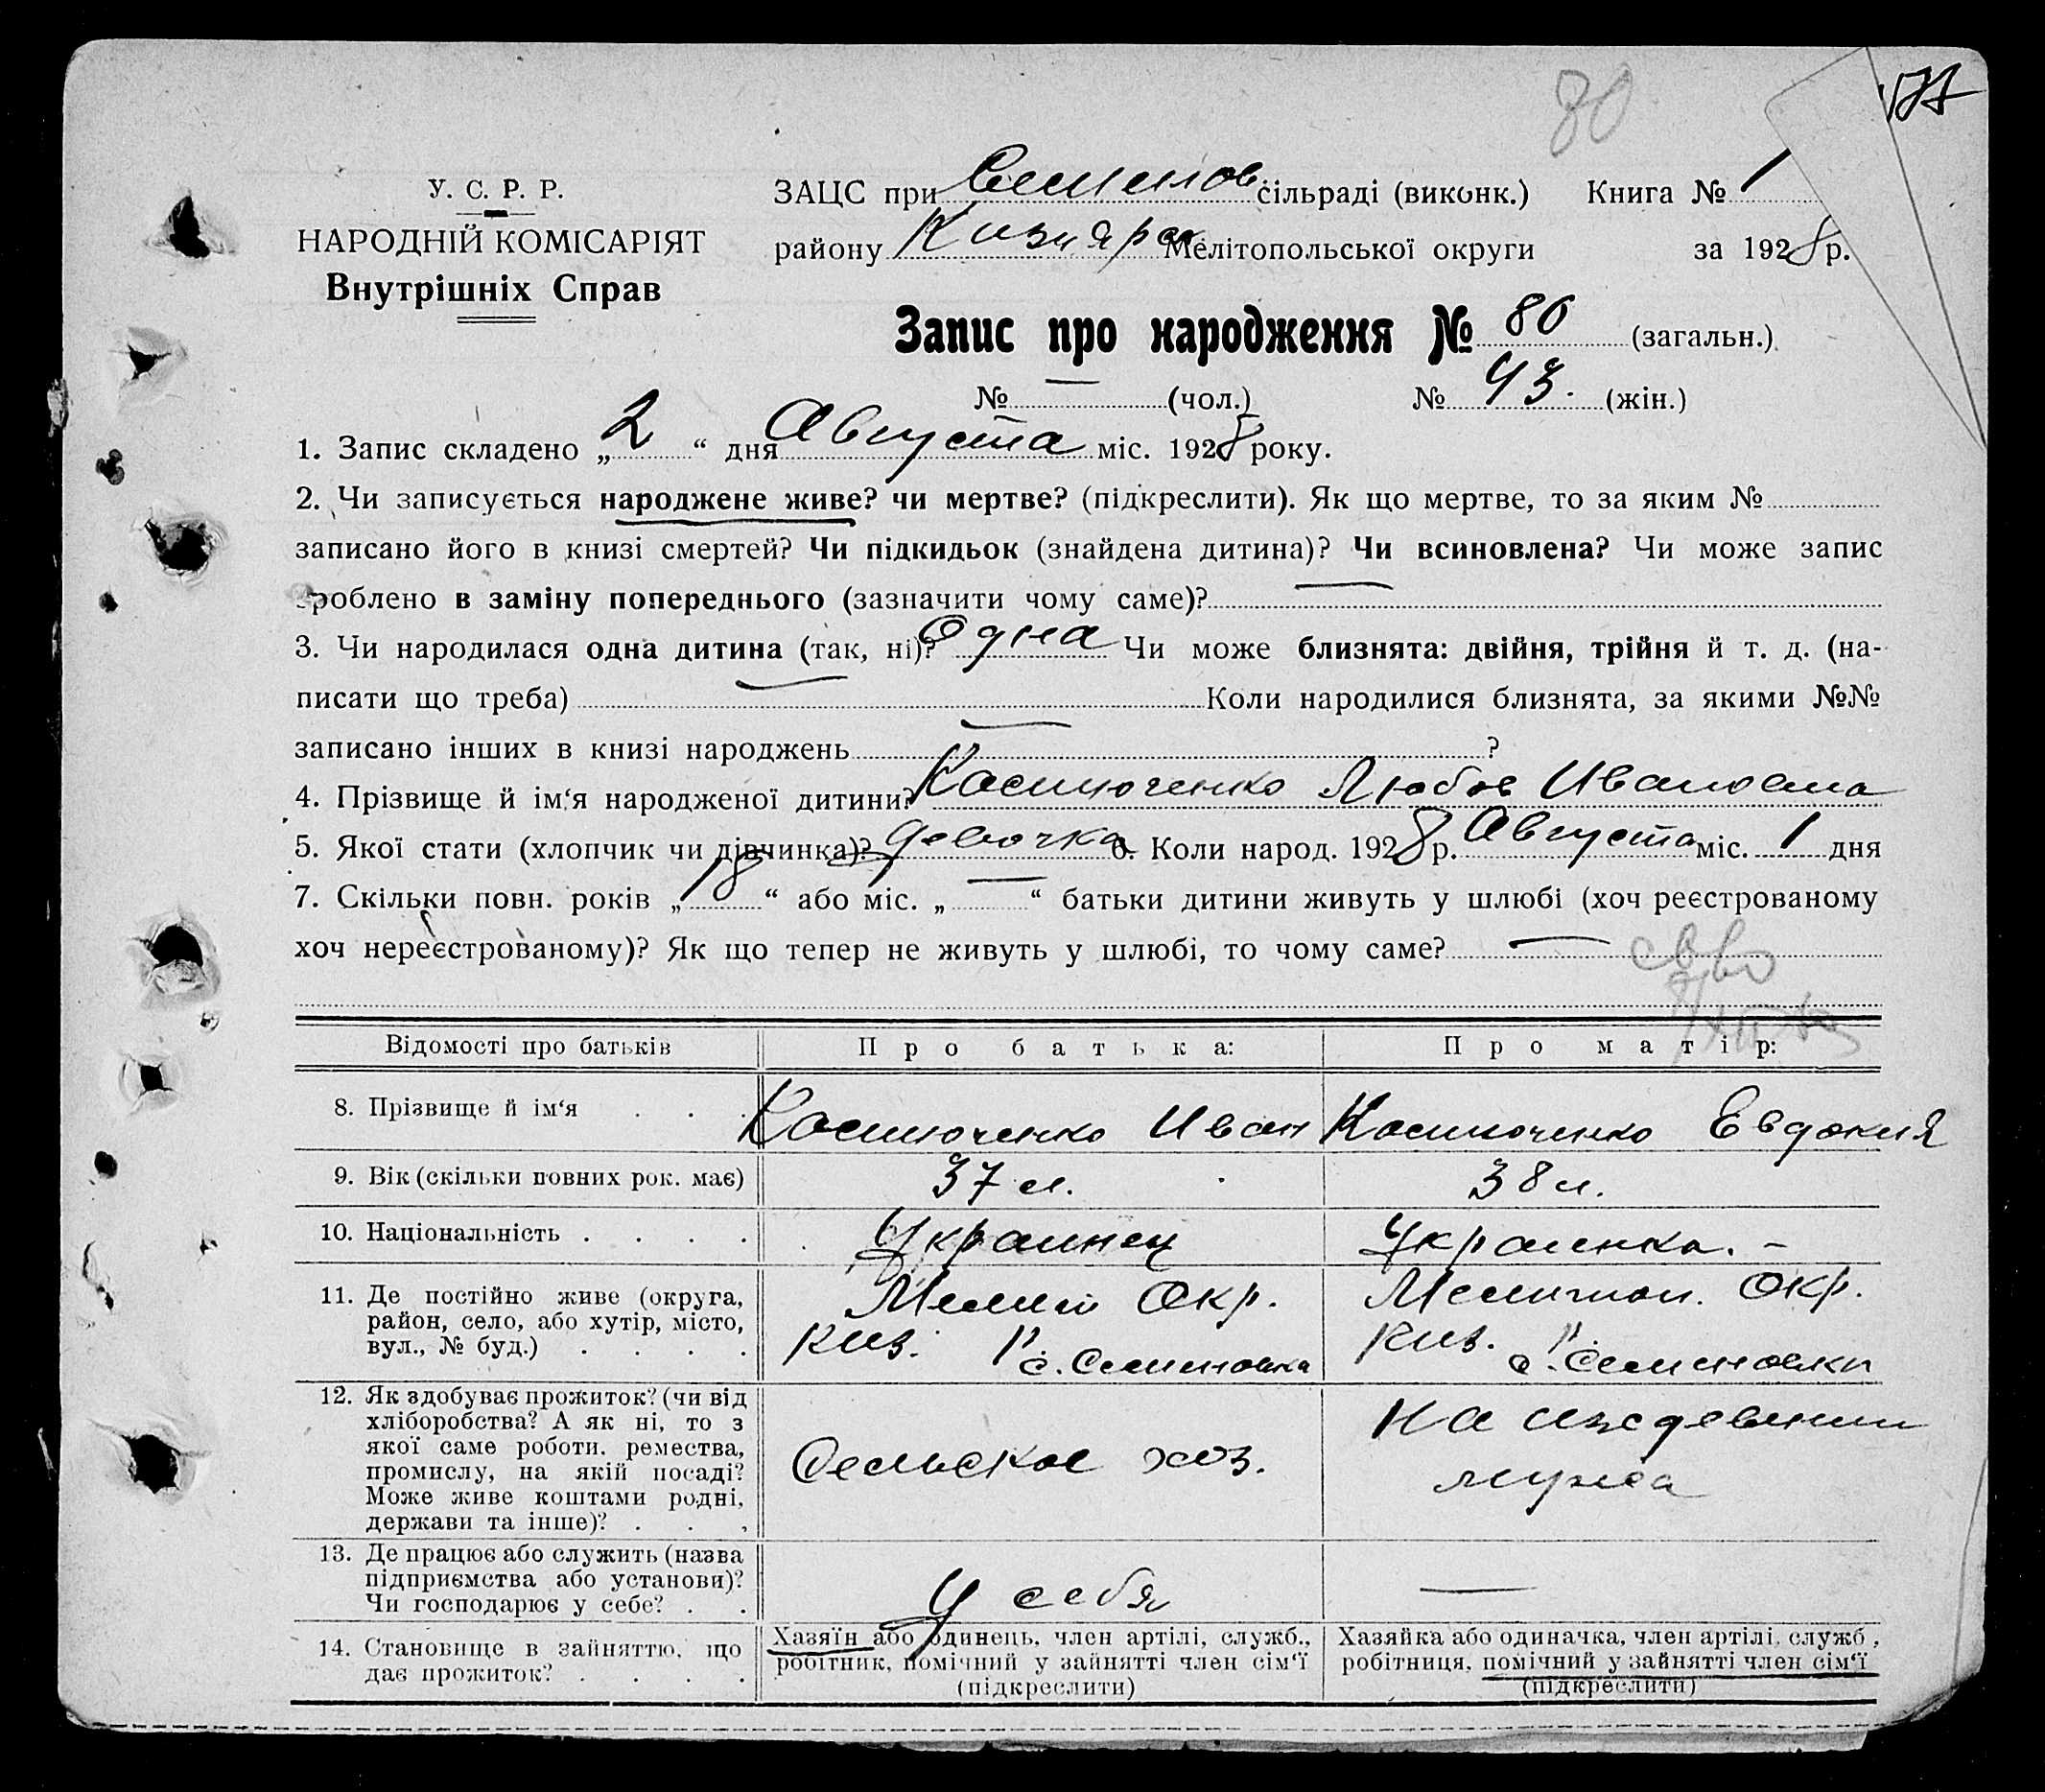 80
У. С. Р. Р.
НАРОДНІЙ КОМІСАРІЯТ
Внутрішніх Справ
ЗАЦС при Семенов сільраді (виконк.) Книга № 1
району Кизияр Мелітопольської округи за 1928 р.
Запис про народження № 80 (загальн.)
№ — (чол.) № 43. (жін.)
1. Запис складено „2“ дня Августа міс. 1928 року.
2. Чи записується народжене живе? чи мертве? (підкреслити). Як що мертве, то за яким №
записано його в книзі смертей? Чи підкидьок (знайдена дитина)? Чи всиновлена? Чи може запис
зроблено в заміну попереднього (зазначити чому саме)? —
3. Чи народилася одна дитина (так, ні)? Одна Чи може близнята: двійня, трійня й т. д. (на-
писати що треба) — Коли народилися близнята, за якими №№
записано інших в книзі народжень — ?
4. Прізвище й ім‘я народженої дитини? Костюченко Любов Ивановна
5. Якої стати (хлопчик чи дівчинка)? девочка 6. Коли народ. 1928 р. Августа міс. 1 дня
7. Скільки повн. років „18“ або міс. „—“ батьки дитини живуть у шлюбі (хоч реєстрованому
хоч нереєстрованому)? Як що тепер не живуть у шлюбі, то чому саме? —
Відомості про батьків Про батька: Про матір:
8. Прізвище й ім‘я . . . Костюченко Иван Костюченко Евдокия
9. Вік (скільки повних рок. має) 37 л. 38 л.
10. Національність . . . . Украинец Украинка. –
11. Де постійно живе (округа, Мелит Окр. Мелитоп. Окр.
район, село, або хутір, місто, Киз. Р Киз. Р
вул., № буд.) . . . . с. Семеновка с. Семеновки
12. Як здобуває прожиток? (чи від
хліборобства? А як ні, то з На иждевении
якої саме роботи. ремества, Сельское хоз. мужа
промислу, на якій посаді?
Може живе коштами родні,
держави та інше)? . . .
13. Де працює або служить (назва
підприємства або установи)? У себя —
Чи господарює у себе? . .
14. Становище в зайняттю, що Хазяїн або одинець, член артілі, служб., Хазяйка або одиначка, член артілі, служб.,
дає прожиток? . . . . робітник, помічний у зайнятті член сім‘ї робітниця, помічний у зайнятті член сім‘ї
(підкреслити) (підкреслити)